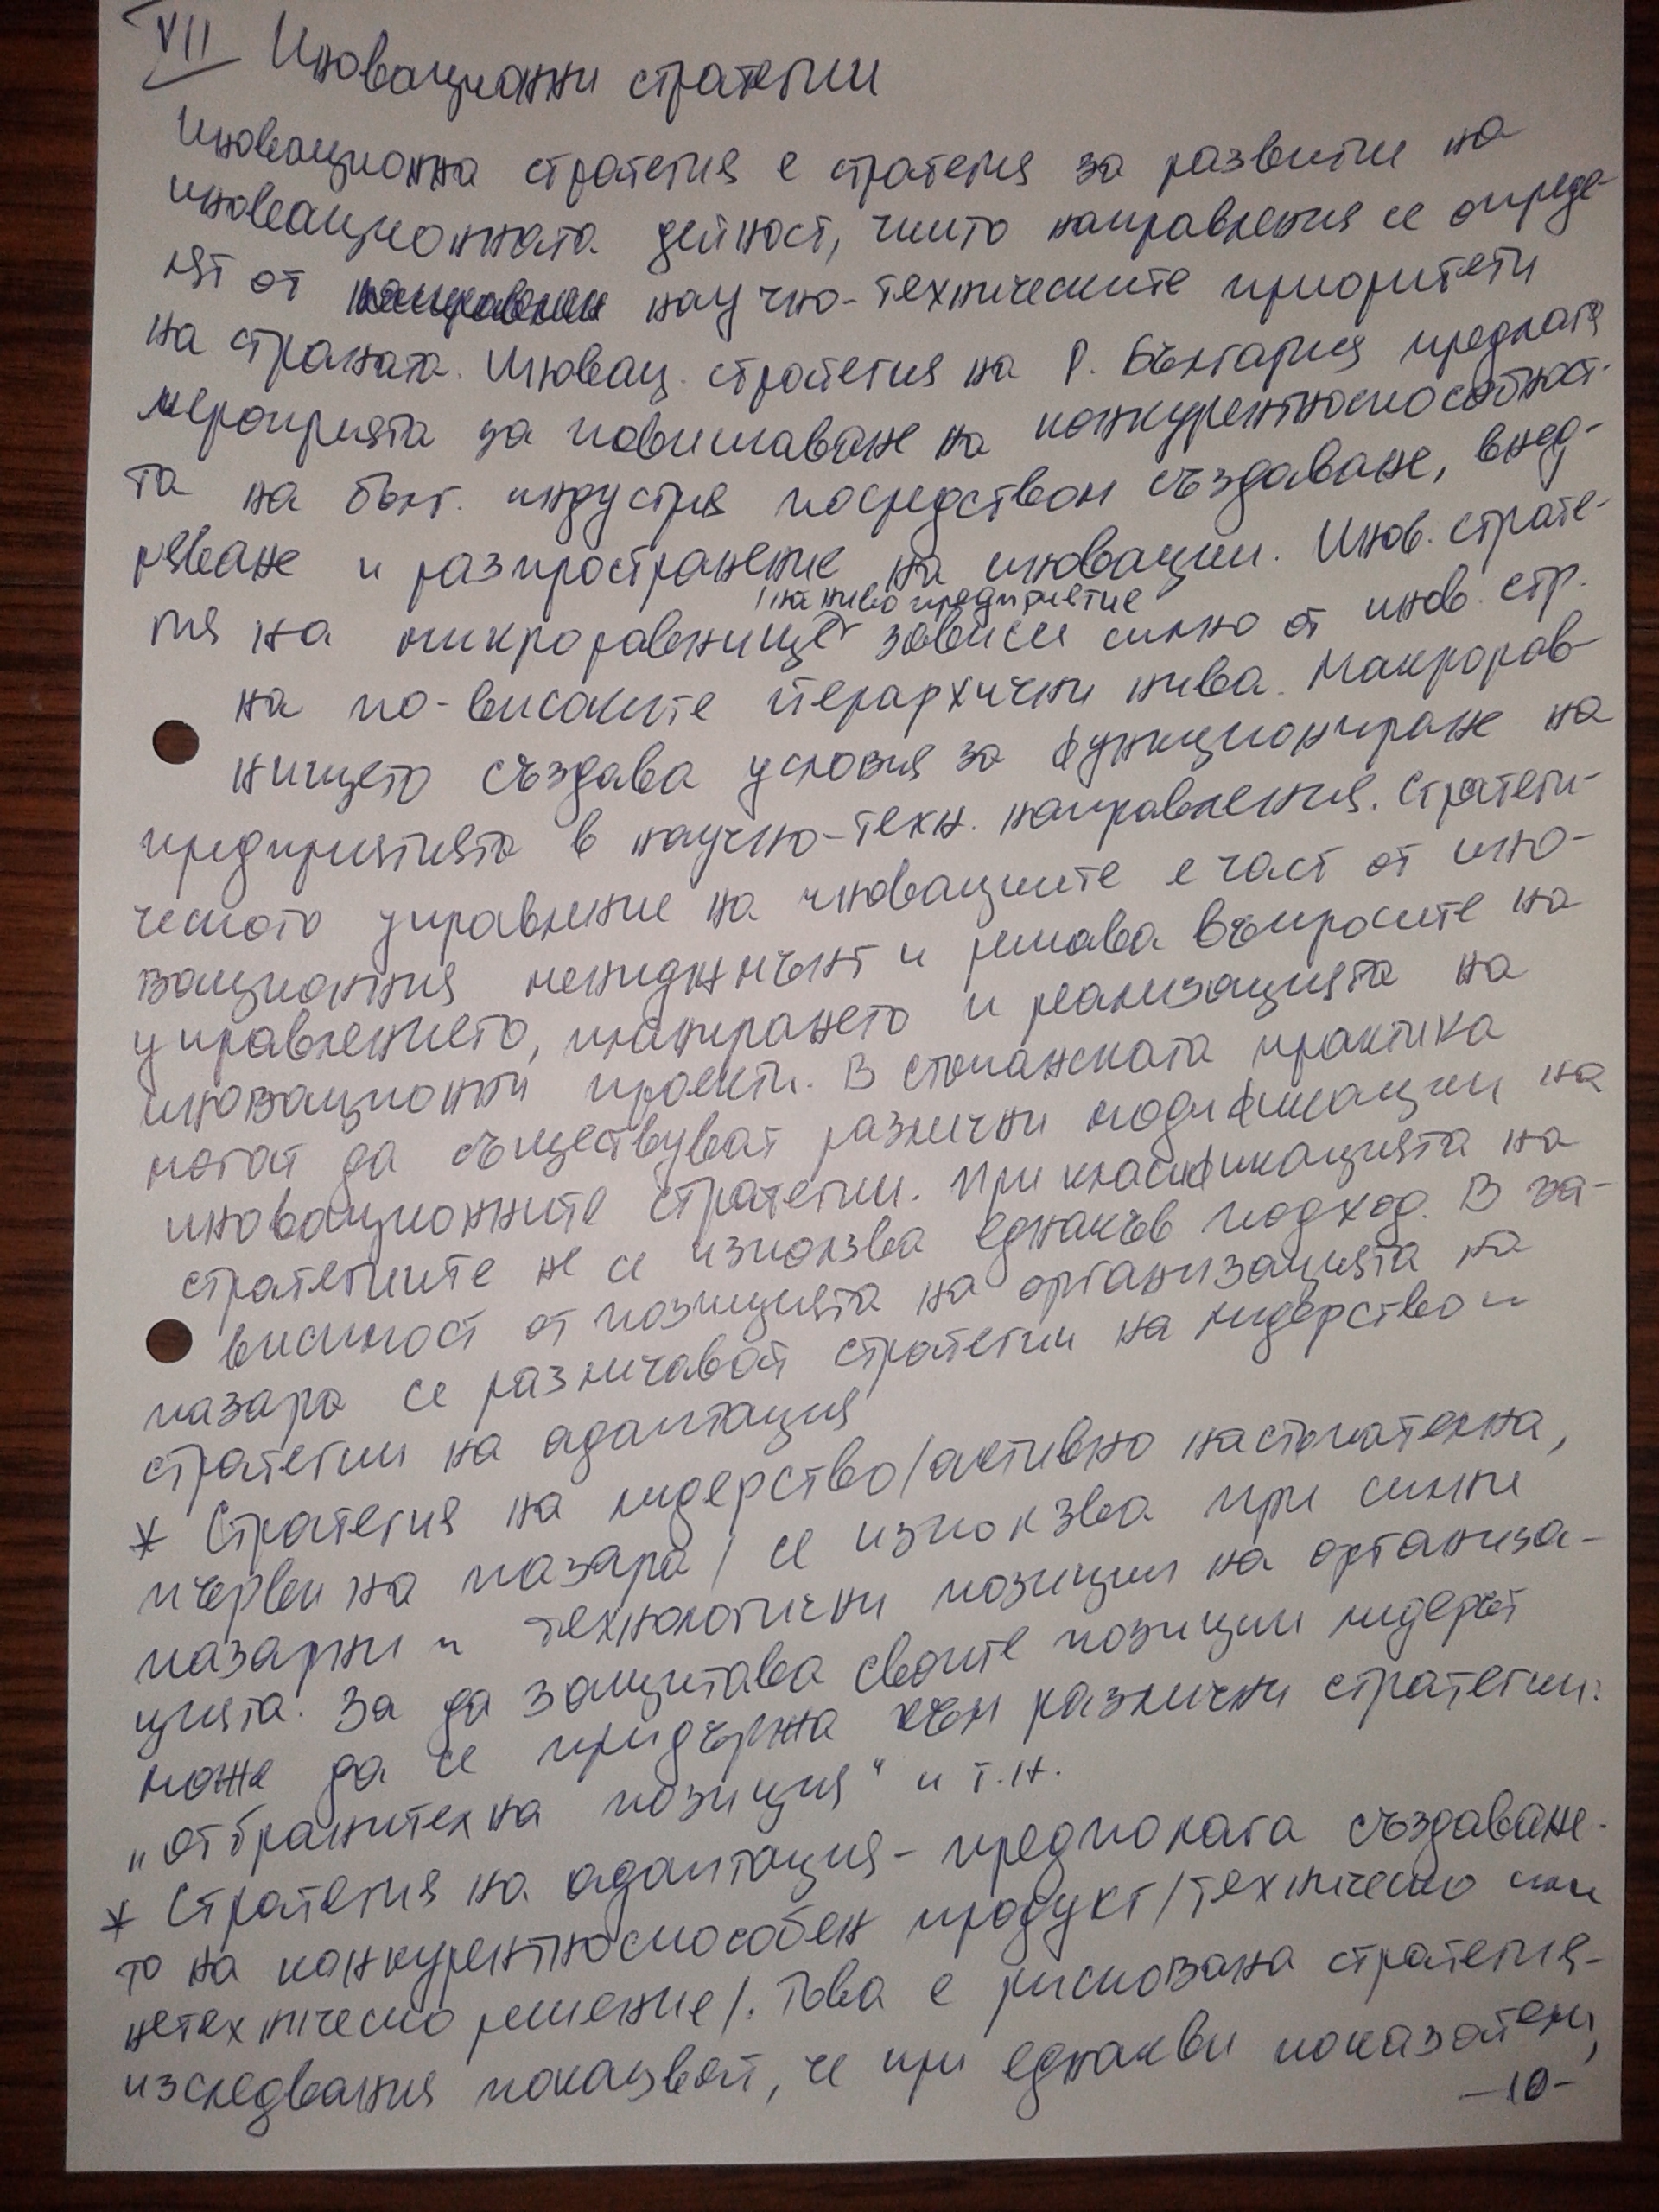 VII Иновационни стратегии
Иновационна стратегия е стратегия за развитие на
иновационната дейност, чиито направления се опреде-
лят от научно-техническите приоритети
на страната. Иновац. стратегия на Р. България предлага
мероприятя за повишаване на конкурентноспособност-
та на бълг. индустрия посредством създаване, внед-
ряване и разпространение на иновации. Инов. страте-
/на ниво предприятие
гия на микроравнище зависи силно от инов. стр.
на по-високите йерархични нива. Макрорав-
нището създава условия за функциониране на
предприятията в научно-техн. направления. Стратеги-
ческото управление на иновациите е част от ино-
вационния мениджмънт и решава въпросите на
управлението, планирането и реализацията на
иновационни проекти. В стопанската практика
могат да съществуват различни модификации на
иновационните стратегии. При класификацията на
стратегиите не се използва еднакъв подход. В за-
висимост от позицията на организацията на
пазара се различават стратегии на лидерство и
стратегии на адаптация
* Стратегия на лидерство/активно настъпателна,
първи на пазара/ се използва при силни
пазарни и технологични позиции на организа-
цията. За да защитава своите позиции лидерът
може да се придържа към различни стратегии:
„отбранителна позиция" и т.н.
* Стратегия на адаптация - предполага създаване-
то на конкурентноспособен продукт/техническо или
нетехническо решение/. Това е рискована стратегия-
изследвания показват, че при еднакви показатели,
-10-